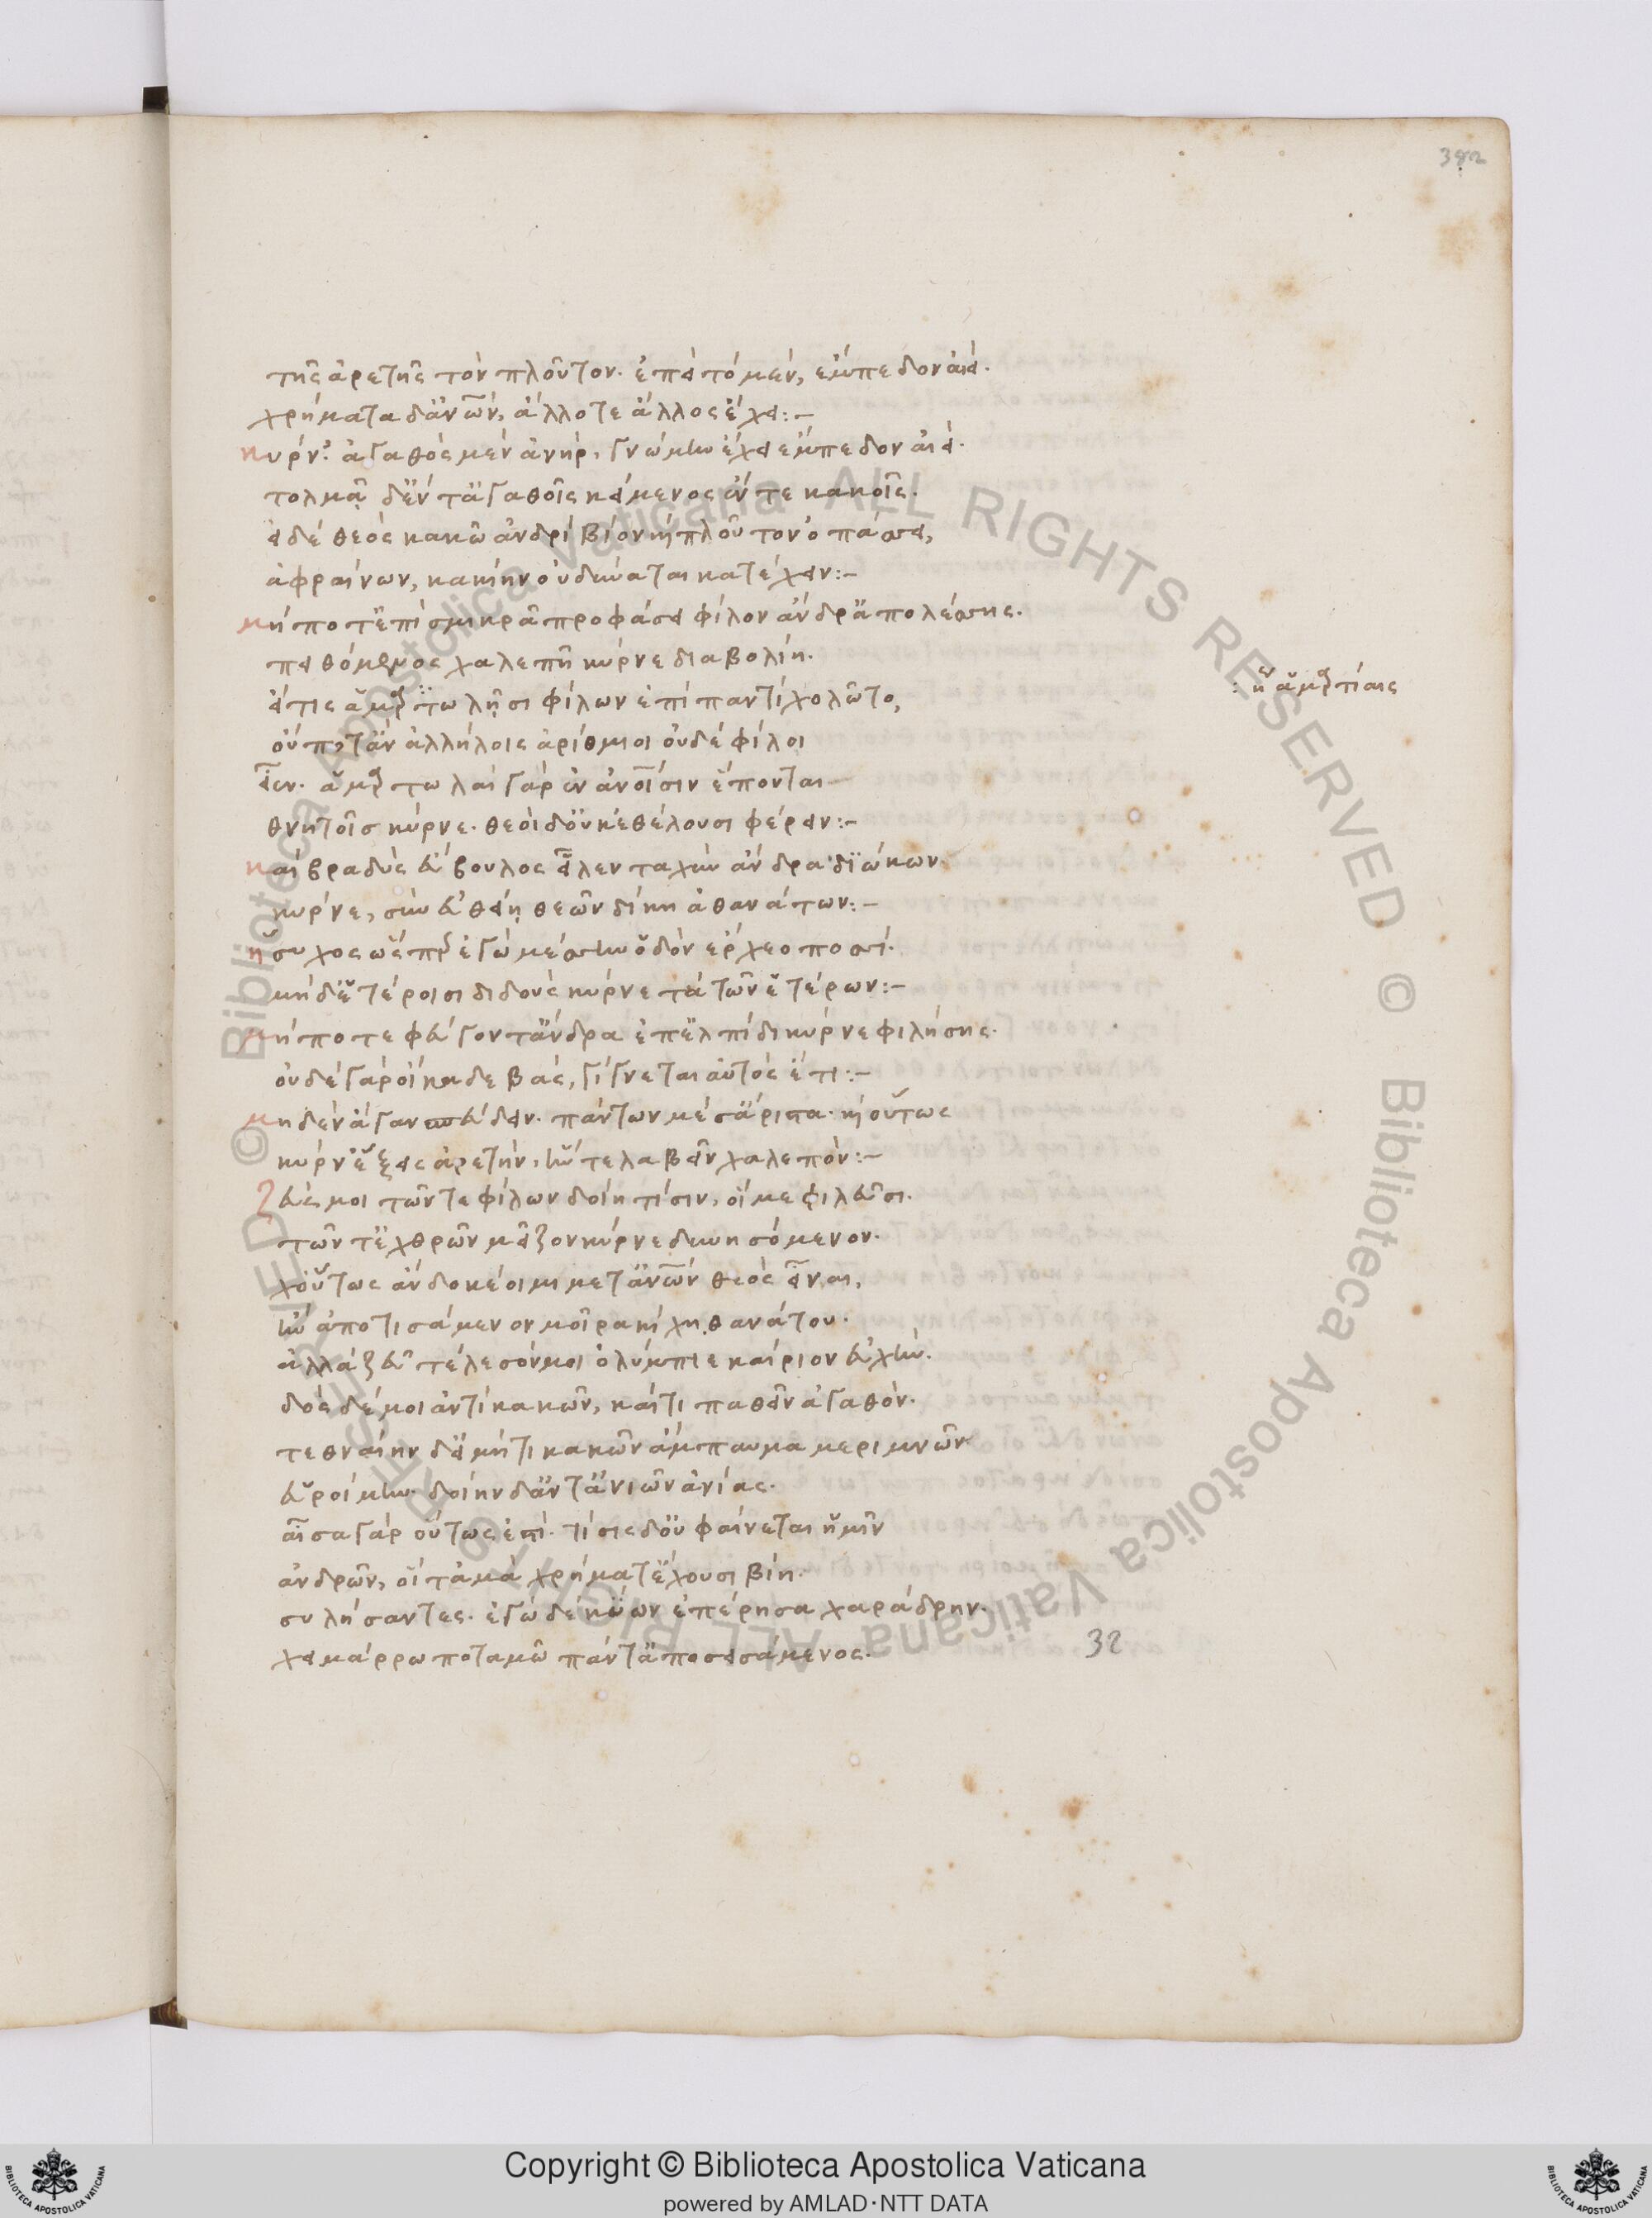 382
τῆς ἀρετῆς τὸν πλοῦτον. ἐπεὶ τὸ μὲν, ἔμπεδον αἰεί.
χρήματα δ' ἀνῶν, ἄλλοτε ἄλλος ἔχει:-
κύρν' ἀγαθὸς μὲν ἀνὴρ, γνώμην ἔχει ἔμπεδον αἰεί.
τολμᾷ δ' ἔν τ' ἀγαθοῖς κείμενος ἔν τε κακοῖς.
εἰ δὲ θεὸς κακῶ ἀνδρὶ βίον καὶ πλοῦτον ὀπάσσει,
ἀφραίνων, κακίην οὐ δύναται κατέχειν:-
μήποτ' ἐπὶ σμικρᾶ προφάσει φίλον ἄνδρ' ἀπολέσσης.
πειθόμενος χαλεπῆ κύρνε διαβολίη.
εἴ τις ἁμαρτωλῆσι φίλων ἐπὶ παντὶ χολῶτο,
: ἢ ἁμαρτίαις
οὔποτ' ἂν ἀλλήλοις ἄρθμιοι οὐδὲ φίλοι
εἶεν. ἁμαρτωλαὶ γὰρ ἐν ἀνοῖσιν ἕπονται
θνητοῖσ κύρνε. θεοὶ δ' οὐκ ἐθέλουσι φέρειν:-
καὶ βραδὺς εὔβουλος εἷλεν ταχὺν ἄνδρα διώκων
κύρνε, σὺν εὐθείη θεῶν δίκη ἀθανάτων:-
ἥσυχος ὥσπερ ἐγὼ μέσσην ὁδὸν ἔρχεο ποσσί.
μὴ δ' ἑτέροισι διδοὺς κύρνε τὰ τῶν ἑτέρων:-
μήποτε φεύγοντ' ἄνδρα ἐπ' ἐλπίδι κύρνε φιλήσης.
οὐδὲ γὰρ οἴκαδε βὰς, γίγνεται αὐτὸς ἔτι:-
μηδὲν ἄγαν σπεύδειν. πάντων μέσ' ἄριστα. καὶ οὕτως
κύρν' ἕξεις ἀρετὴν, ἥν τε λαβεῖν χαλεπόν:-
ζεύς μοι τῶν τε φίλων δοίη τίσιν, οἵ με φιλεῦσι.
τῶν τ' ἐχθρῶν μεῖζον κύρνε δυνησόμενον.
χοὕτως ἂν δοκέοιμι μετ' ἀνῶν θεὸς εἶναι,
ἤν ἀποτισάμενον μοῖρα κίχῃ θανάτου.
ἀλλὰ ζεῦ τέλεσόν μοι ὀλύμπιε καίριον εὐχήν.
δὸς δέ μοι ἀντὶ κακῶν, καί τι παθεῖν ἀγαθόν.
τεθναίην δ' εἰ μή τι κακῶν ἄμπαυμα μεριμνῶν
εὑροίμην. δοίην δ' ἀντ' ἀνιῶν ἀνίας.
αἶσα γὰρ οὕτως ἐστί. τίσις δ' οὐ φαίνεται ἡμῖν
ἀνδρῶν, οἳ τἀμὰ χρήματ' ἔχουσι βίη.
συλήσαντες. ἐγὼ δὲ κύων ἐπέρησα χαράδρην.
χειμάρρω ποταμῶ πάντ' ἀποσεισάμενος.
32
Copyright © Biblioteca Apostolica Vaticana
powered by AMLAD·NTT DATA